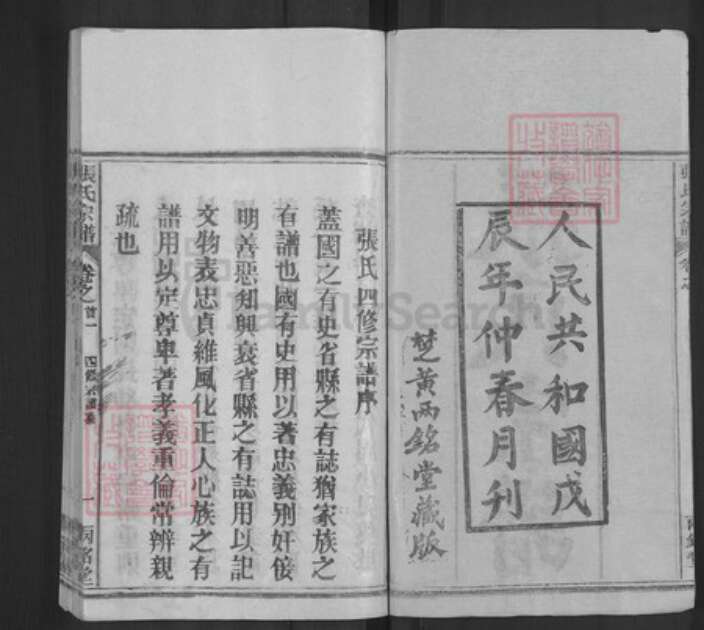 人民共和國戊
辰年仲春月刊
楚黃兩銘堂藏版
張氏四修宗譜序
蓋國之有史省縣之有誌猶家族之
有譜也國有史用以著忠義別奸佞
明善惡知興衰省縣之有誌用以記
文物表忠貞維風化正人心族之有
譜用以定尊卑著孝義重倫常辨親
疏也
張氏宗譜
卷之首一
一
兩銘堂
FamilySearch